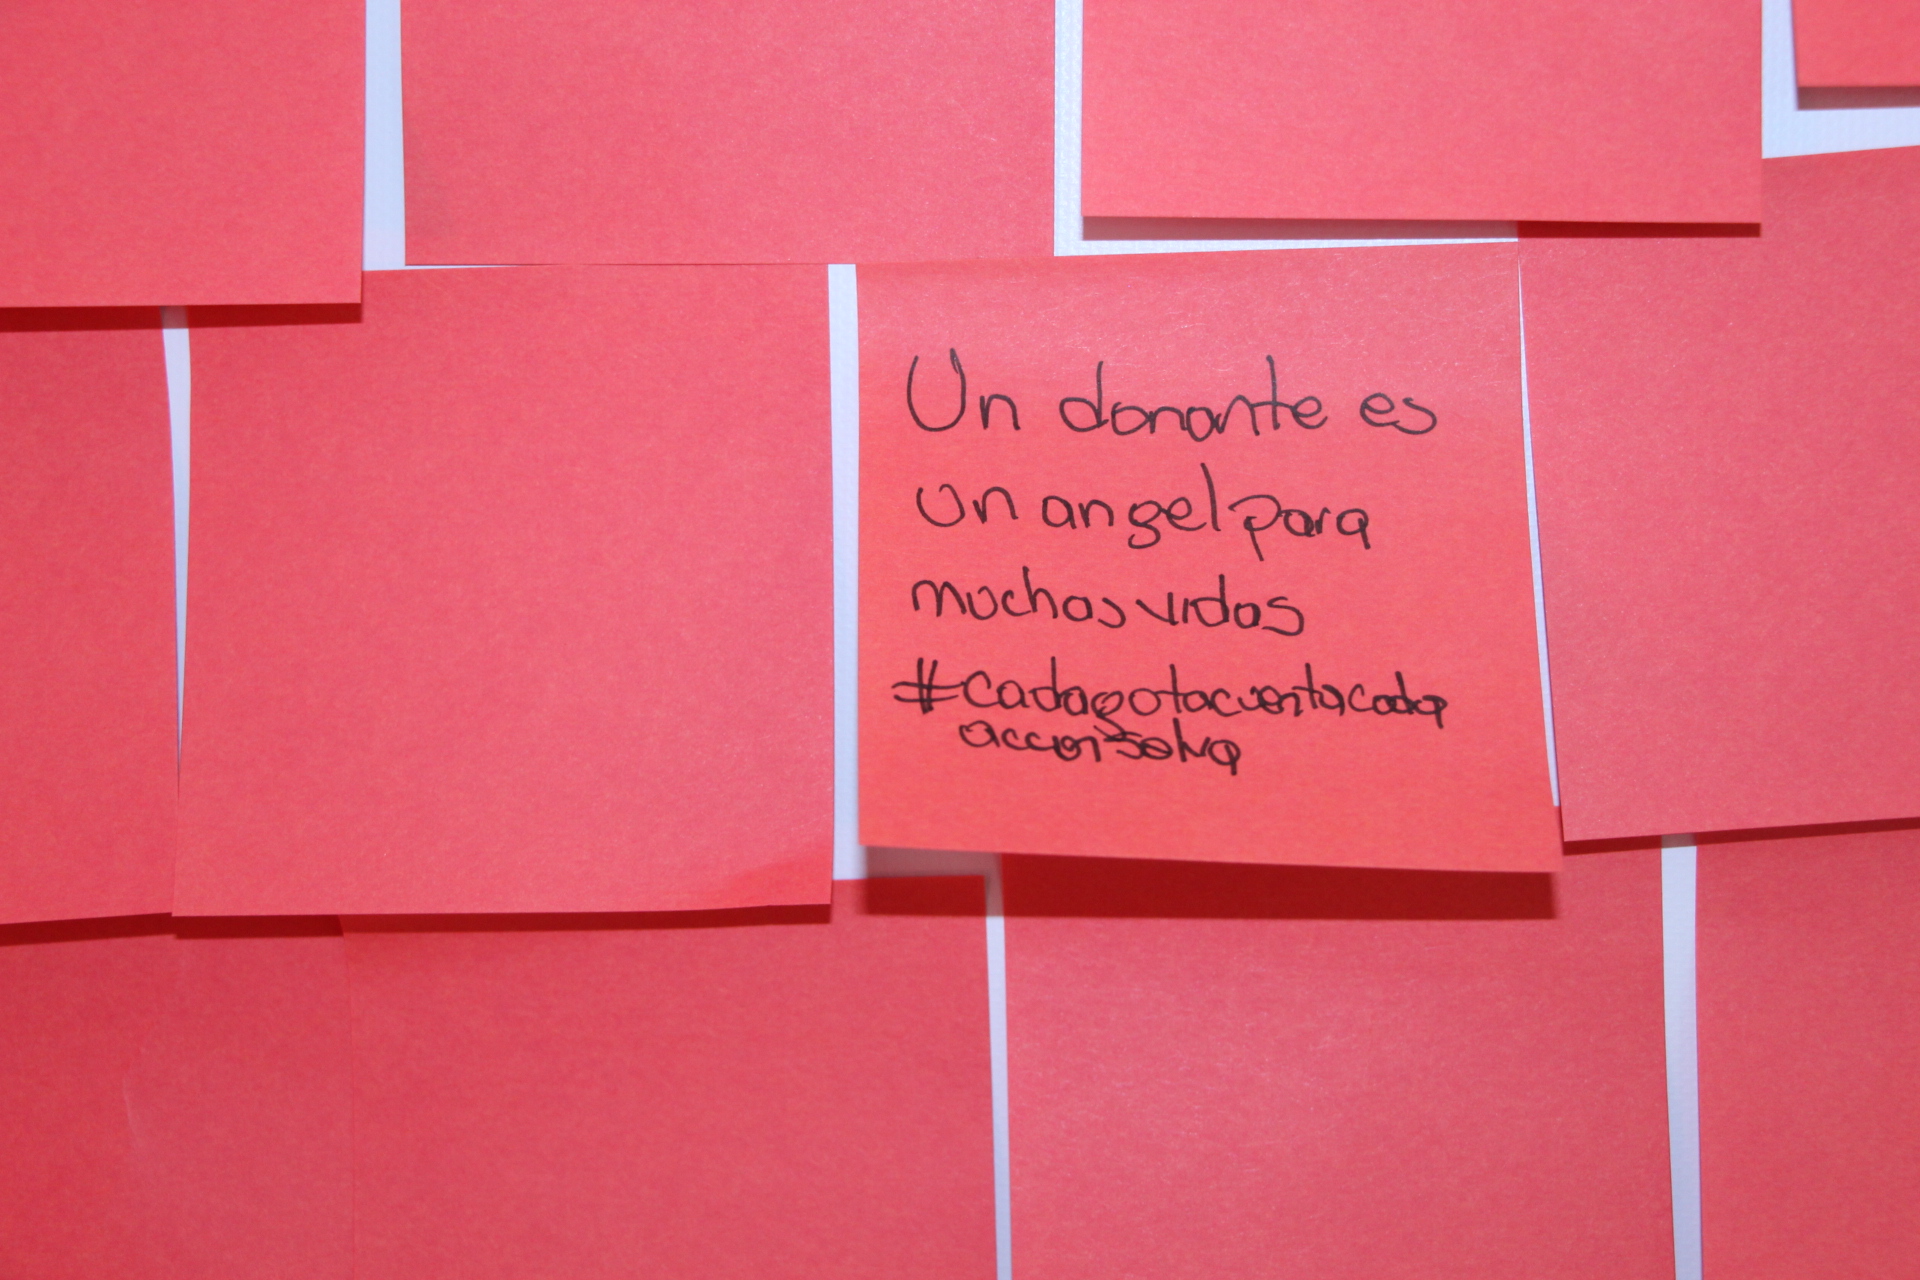 Un donante es
un angel para
muchas vidas
#cadagotacuentacada
accionsalva